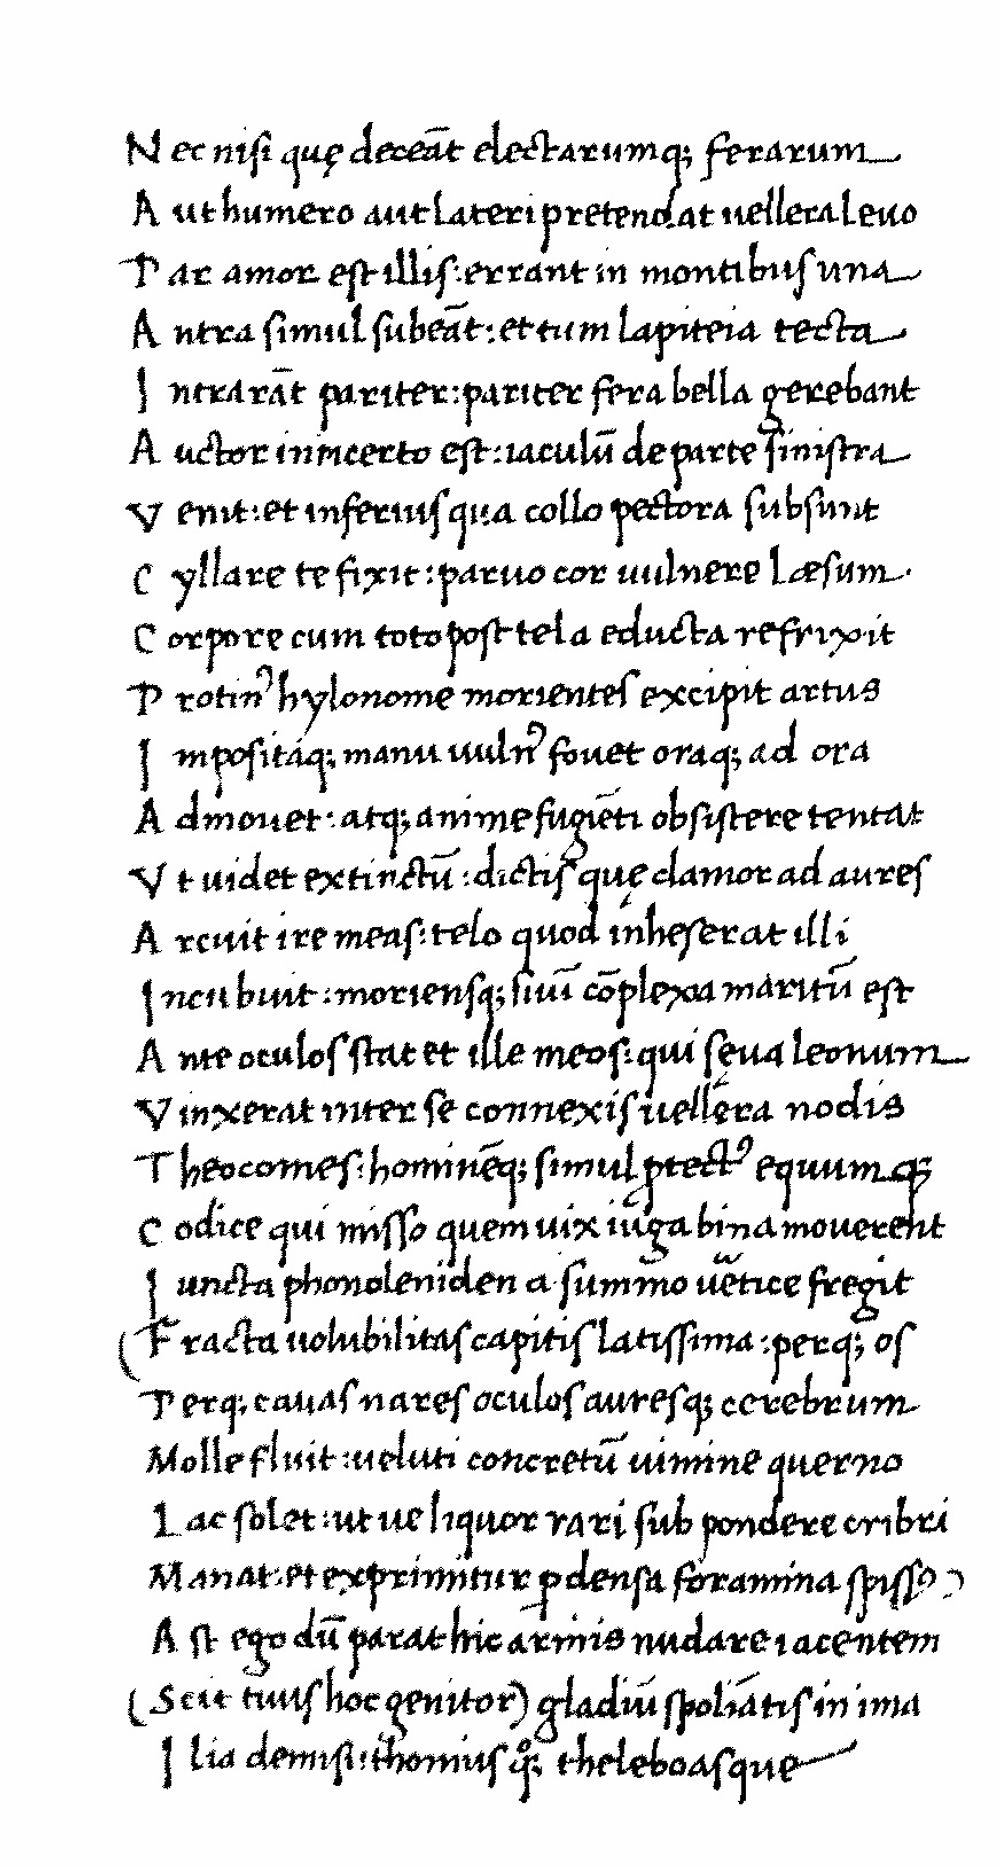 Nec nisi quę deceāt electarumq; ferarum
Aut humero aut lateri pretendat uellera leuo
Par amor est illis: errant in montibus una
Antra simul subeāt: et tum lapiteia tecta
Intrarāt pariter: pariter fera bella gerebant
Auctor in incerto est: iaculū de parte sinistra
Venit: et inferius qua collo pectora subsunt
Cyllare te fixit: paruo cor uulnere læsum.
Corpore cum toto post tela educta refrixit
Protinꝰ hylonome morientes excipit artus
Impositaq; manu uulnꝰ fouet oraq; ad ora
Admouet: atq; anime fugiēti obsistere tentat
Vt uidet extinctū: dictis quę clamor ad aures
Arcuit ire meas: telo quod inheserat illi
Incubuit: moriensq; suū cōplexa maritū est
Ante oculos stat et ille meos: qui sęua leonum
Vinxerat inter se connexis uellera nodis
Pheocomes: hominēq; simul ꝓtectꝰ equumq;
Codice qui misso quem uix iuga bina mouerent
Iuncta phonoleniden a summo uētice fregit
(Fracta uolubilitas capitis latissima: perq; os
Perq; cauas nares oculos auresq; cerebrum
Molle fluit: ueluti concretū uimine querno
Lac solet: ut ue liquor rari sub pondere cribri
Manat: et exprimitur ꝑ densa foramina spissꝰ)
Ast ego dū parat hic armis nudare iacentem
(Scit tuus hoc genitor) gladiū spoliātis in ima
Ilia demisi: thonius q͛; theleboasque